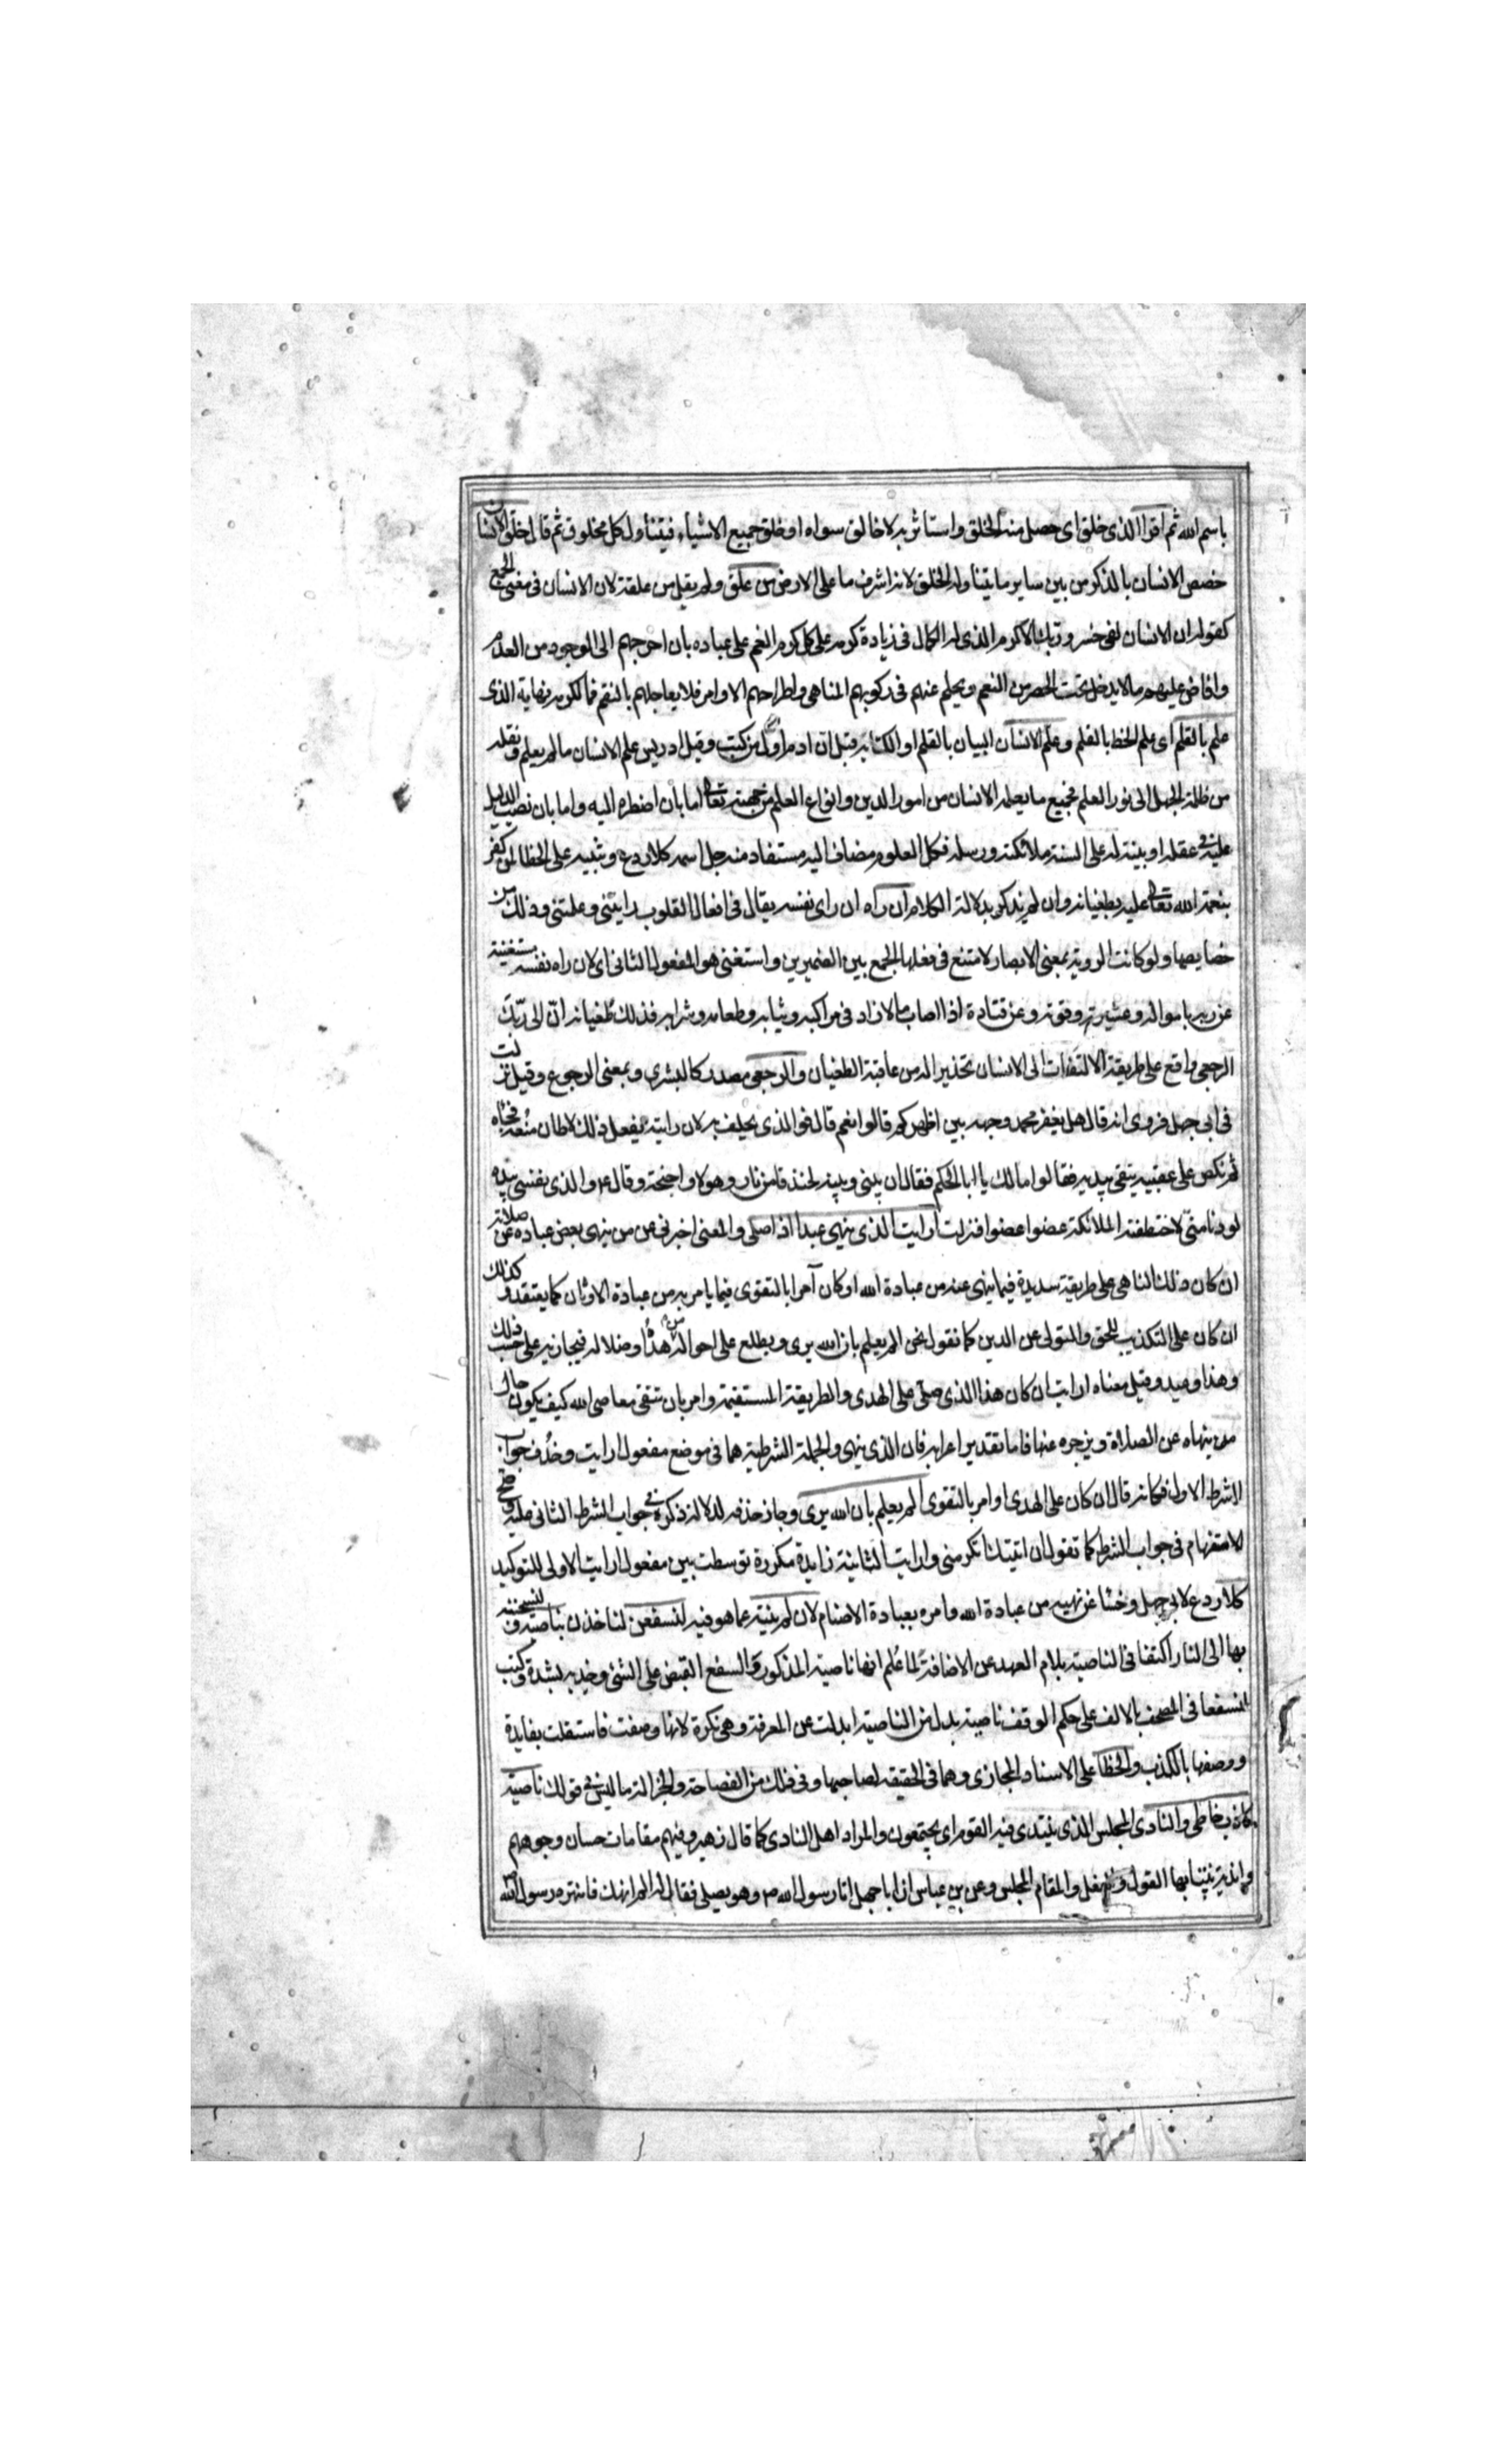 باسم الله ثم اقرا الذى خلق اى حصل منه الخلق واستاثر به لا خالق سواه او خلق جميع الاشياء فيتناول كل مخلوق ثم قال خلق الانسان
خصص الانسان بالذكر من بين ساير ما يتناوله الخلق لانه اشرف ما على الارض من علق ولم يقل من علقة لان الانسان فى معنى الجمع
كقوله ان الانسان لفى خسر وربك الاكرم الذى له الكمال فى زيادة كرمه على كل كرم النعم على عباده بان اخرجهم الى الوجود من العدم
وافاض عليهم ما لا يدخل تحت الحصر من النعم ويحلم عنهم فى ركوبهم المناهى واطراحهم الاوامر فلا يعاجلهم بالنقم فما لكرمه نهاية الذى
علم بالقلم اى علم الخط بالقلم وعلم الانسان البيان بالقلم او الكتابه قيل ان ادم اول من كتب وقيل ادريس علم الانسان ما لم يعلم ونقله
من ظلمة الجهل الى نور العلم فجميع ما يعلمه الانسان من امور الدين وانواع العلم من جهته تعالى اما بان اضطره اليه واما بان نصب الدليل
عليه فى عقله او بينه له على السنة ملائكته ورسله فكل العلوم مضاف اليه مستفاد منه جل اسمه كلا ردع وتنبيه على الخطا لمن كفر
بنعمة الله تعالى عليه بطغيانه وان لم يذكر بدلالة الكلام ان راه ان راى نفسه يقال فى افعال القلوب رايتنى وعلمتنى وذلك من
خصايصها ولو كانت الروية بمعنى الابصار لامتنع فى فعلها الجمع بين الضميرين واستغنى هو المفعول الثانى اى لان راه نفسه مستغنية
عن ربه بامواله وعشيرته وقوته وعن قتادة اذا اصاب مالا زاد فى مراكبه وثيابه وطعامه وشرابه فذلك طغيانه ان الى ربك
الرجعى واقع على طريقة الالتفات الى الانسان تحذيرا له من عاقبة الطغيان والرجعى مصدر كالبشرى وبمعنى الرجوع وقيل نزلت
فى ابى جهل فروى انه قال هل يعفر محمد وجهه بين اظهركم قالوا نعم قال فو الذى يحلف به لان رايته يفعل ذلك لاطان عنقه فجاه
ثم نكص على عقبيه يتقى بيديه فقالوا مالك يا ابا الحكم فقال ان بينى وبينه لخندقا من نار وهولا واجنحة وقال ع والذى نفسى بيده
لو دنا منى لاختطفته الملائكة عضوا عضوا فنزلت ارايت الذى ينهى عبدا اذا صلى والمعنى اخبرنى عن من ينهى بعض عباده عن صلاته
ان كان ذلك الناهى على طريقة سديدة فيما ينهى عنه من عبادة الله او كان آمرا بالتقوى فيما يامر به من عبادة الاوثان كما يعتقد وكذلك
ان كان على التكذيب للحق والتولى عن الدين كما نقول نحن الم يعلم بان الله يرى ويطلع على احواله من هداه وضلاله فيجازيه على حسب ذلك
وهذا وعيد وقيل معناه ارايت ان كان هذا الذى صلى على الهدى والطريقة المستقيمة وامر بان تتقى معاصى الله كيف يكون حال
من ينهاه عن الصلاة ويزجره عنها فاما تقدير اعرابه فان الذى ينهى والجملة الشرطية هما فى موضع مفعول ارايت وحذف جواب
الشرط الاول فكانه قال ان كان على الهدى او امر بالتقوى الم يعلم بان الله يرى وجاز حذفه لدلالة ذكره فى جواب الشرط الثانى عليه وصح
الاستفهام فى جواب الشرط كما تقول ان اتيتك اتكرمنى وارايت الثانية زايدة مكررة توسطت بين مفعول ارايت الاولى للتوكيد
كلا ردع لابى جهل وخسا عن نهيه من عبادة الله وامره بعبادة الاصنام لان لم ينته عما هو فيه لنسفعن لناخذن بناصيته ولنسحبنه
بها الى النار اكتفا فى الناصية بلام العهد عن الاضافة لما علم انها ناصية المذكور والسفع القبض على الشى وجذبه بشدة وكتب
لنسفعا فى المصحف بالالف على حكم الوقف ناصية بدل من الناصية ابدلت عن المعرفة وهى نكرة لانها وصفت فاستقلت بفايدة
ووصفها بالكذب والخطا على الاسناد المجازى وهما فى الحقيقة لصاحبها وفى ذلك من الفصاحة والجزالة ما ليس فى قولك ناصية
كاذب خاطى والنادى المجلس الذى ينتدى فيه القوم اى يجتمعون والمراد اهل النادى كما قال زهير وفيهم مقامات حسان وجوههم
واندية ينتابها القول والفعل والمقام المجلس وعن بن عباس ان ابا جهل اتا رسول الله ص وهو يصلى فقال له الم انهك فانتهره رسول الله